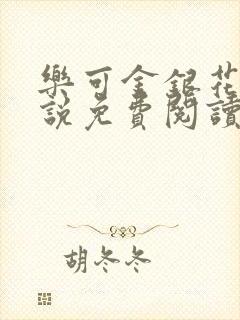 樂可金銀花
說免費閱讀
胡冬冬